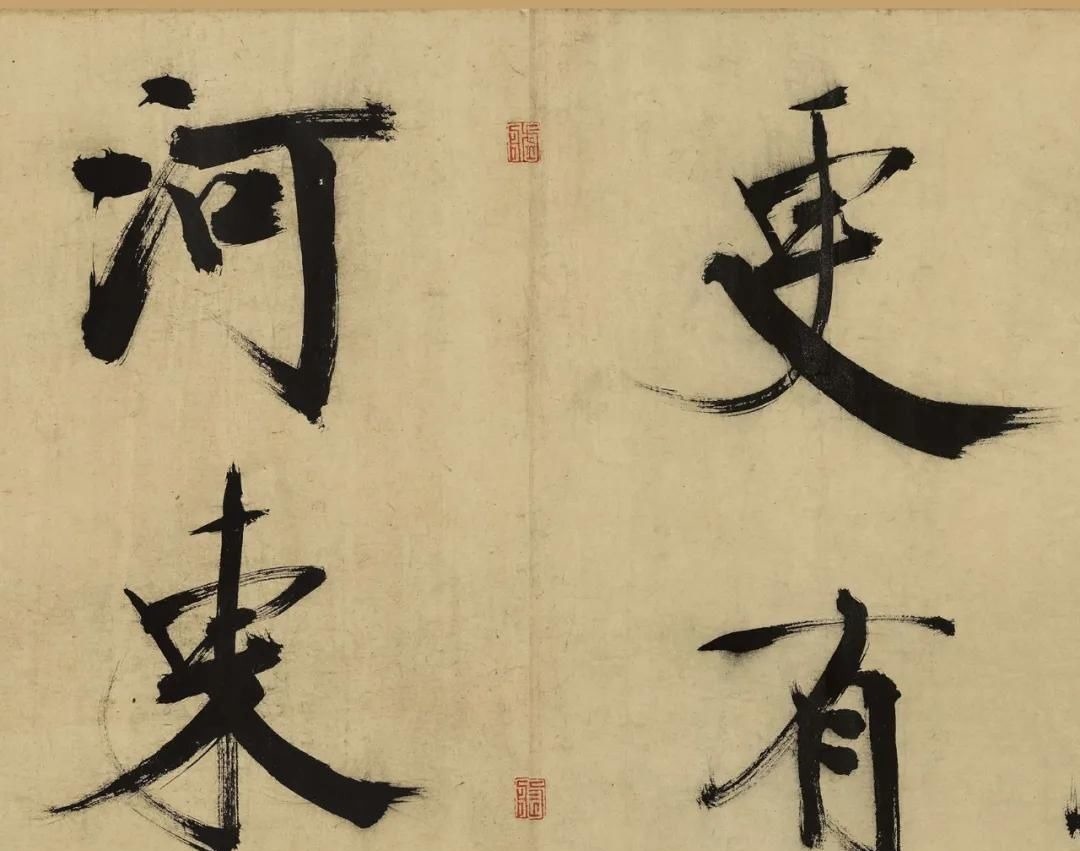 更有
河東